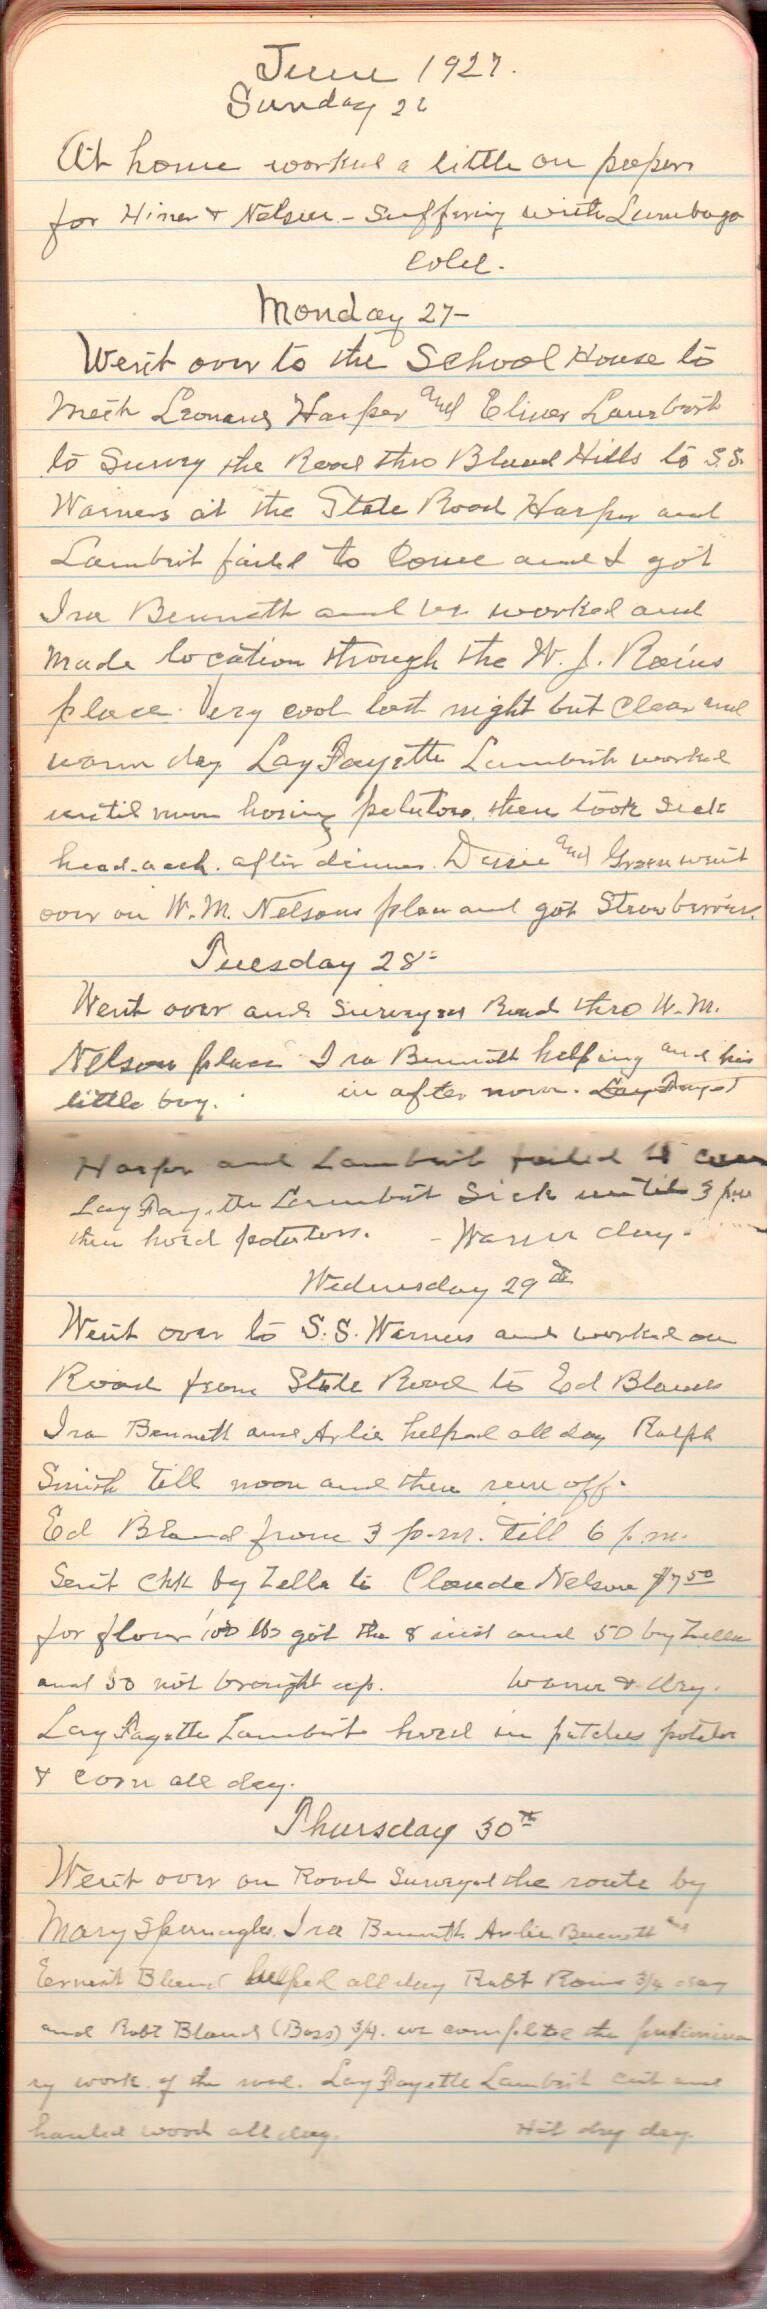 June 1927.
Sunday 26
At home worked a little on papers
for Hiner & Nelson - Suffering with Lumbago
Cold.
Monday 27-
Went over to the School House to
meet Leonard Harper and Elmer Lambert
to Survey the Road thro Bland Hills to S.S.
Warners at the State Road Harper and
Lambert failed to Come and I got
Ira Bennett and we worked and
made location through the W. J. Rains
place. Very cool last night but Clear and
warm day LayFayette Lambert worked
until noon hoeing potatoes, then took Sick
head-ach. after dinner. Dessie and Green went
over on W. M. Nelsons place and got Strawberries.
Tuesday 28-
Went over and Surveyed Road thro W. M.
Nelson place Ira Bennett helping and his
little boy. in after noon. LayFayet
Harper and Lambert failed to come
LayFayette Lambert Sick until 3 p.m
then hoed potatoes. - Warm day -
Wednesday 29th
Went over to S.S. Warners and worked on
Road from State Road to Ed Blands
Ira Bennett and Arlie helped all day Ralph
Smith till noon and then run off.
Ed Bland from 3 p.m. till 6 p.m.
Sent Chk by Zella to Claude Nelson $7.50
for flour 100 lbs got the 8 inst and 50 by Zella
and 50 not brought up. Warm & dry.
LayFayette Lambert hoed in patches potato
& Corn all day.
Thursday 30th
Went over on Road Surveyed the route by
Mary Ira Bennett Arlie Bennett and
Ernest Bland helped all day Robt Rains 3/4 day
and Robt Bland (Boss) 3/4. we completed the prelimina
ry work of the road. LayFayette Lambert Cut and
hauled wood all day. Hot dry day.